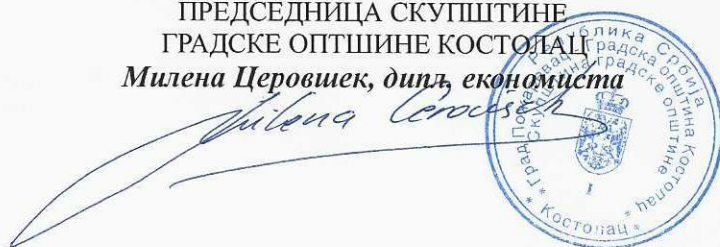 ПРЕДСЕДНИЦА СКУПШТИНЕ
ГРАДСКЕ ОПТШИНЕ КОСТОЛАЦ
Милена Церовшек, дипл. економиста
Milena Cerovšek
Република Србија
Град Пожаревац Градска општина Костолац
Скупштина градске општине
I
* Костолац *